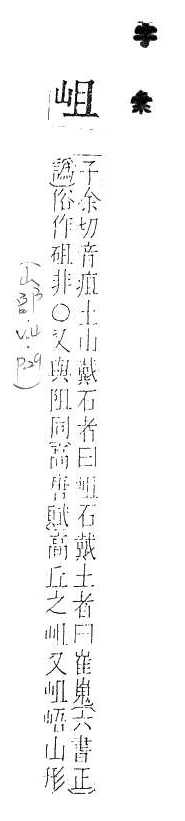 字彙
岨
子余切音疽土山戴石者曰岨石戴土者曰崔嵬(六書正
譌)俗作砠非○又與阻同高唐賦高丘之岨又岨峿山形
(山部.V.4.P29)